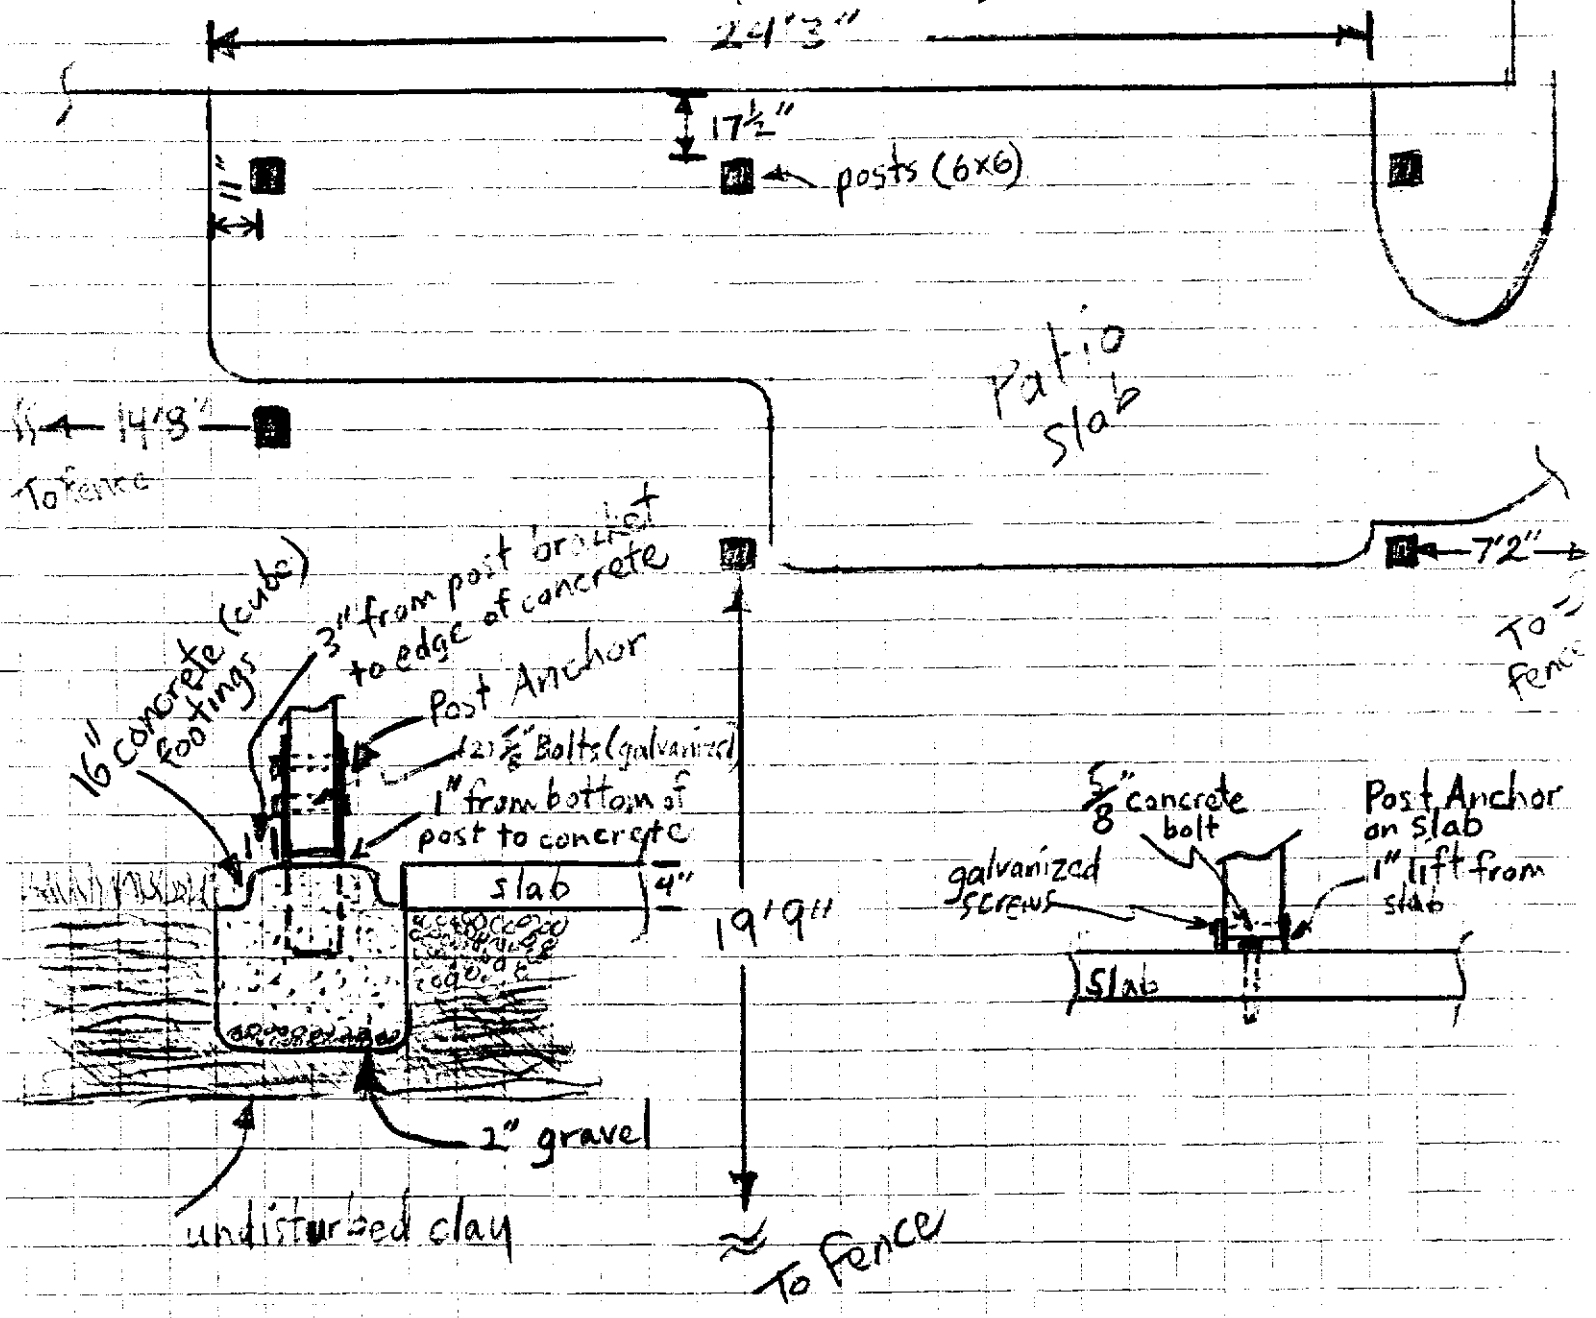 24'3"
17½"
posts (6x6)
11"
Patio
Slab
14'8"
To fence
7'2"
To
fence
16" concrete (cube)
footings
3" from post bracket
to edge of concrete
Post Anchor
(2) ⅝" Bolts (galvanized)
1" from bottom of
post to concrete
slab
4"
19'9"
2" gravel
undisturbed clay
To fence
⅝" concrete
bolt
galvanized
screws
Post Anchor
on slab
1" lift from
slab
Slab